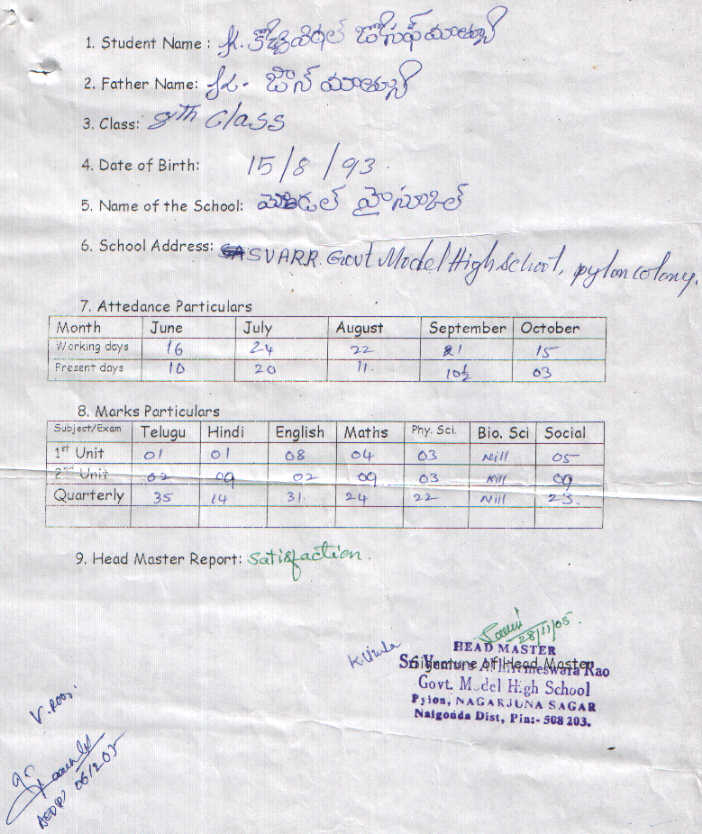 1. Student Name : K.
2. Father Name: K. జాన్ మాథ్యు
3. Class: 8th Class
4. Date of Birth: 15/8/93.
5. Name of the School: మోడల్ హైస్కూల్
6. School Address: SVARR. Govt Model High school, pylon colony.
7. Attedance Particulars
Month June July August September October
Working days 16 24 22 21 15
Present days 10 20 11. 10½ 03
8. Marks Particulars
Subject/Exam Telugu Hindi English Maths Phy. Sci. Bio. Sci Social
1st Unit 01 01 08 04 03 Nill 05
2nd Unit 02 09 02 09 03 Nill 09
Quarterly 35 14 31. 24 22 Nill 23.
9. Head Master Report: Satisfaction.
28/11/05.
HEAD MASTER
Signature of Head Master
Govt. Model High School
Pylon, NAGARJUNA SAGAR
Nalgonda Dist, Pin:- 508 203.